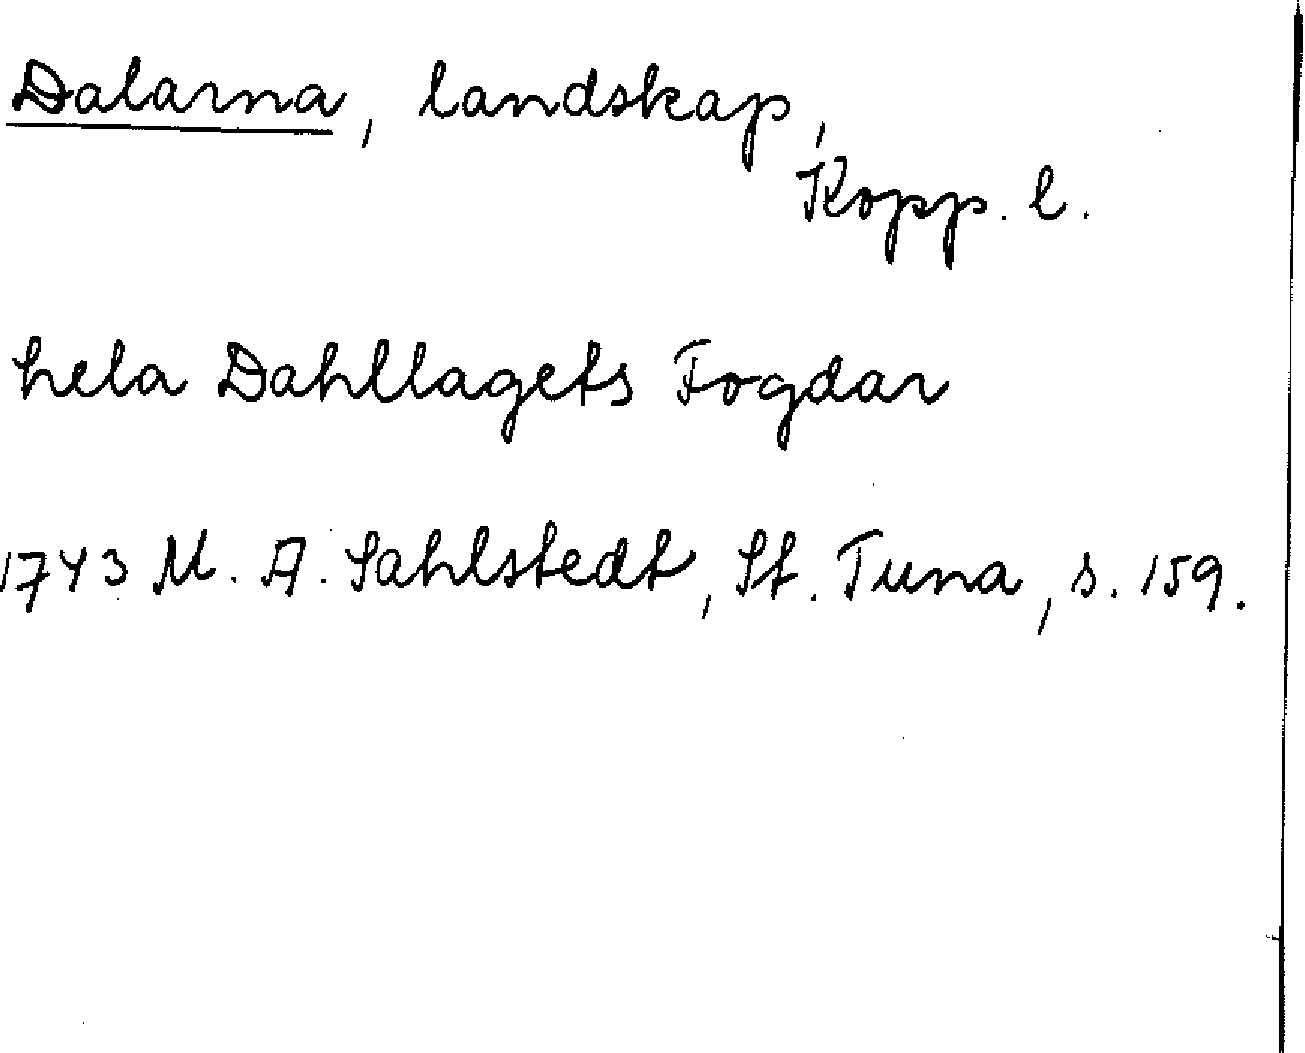 Dalarna, landskap,
Kopp. l.
hela Dahllagets Fogdar
1743 M. A. Sahlstedt, St. Tuna, s. 159.